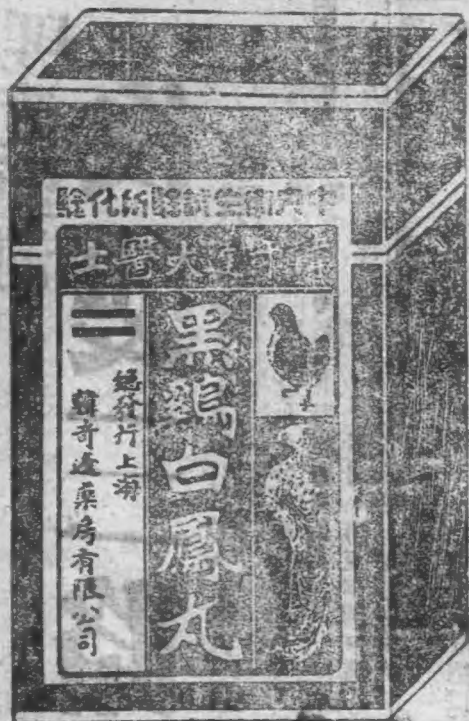 中央衛生試驗所化驗
大醫士
黑鷄白鳳丸
總發行上海
藥房有限公司